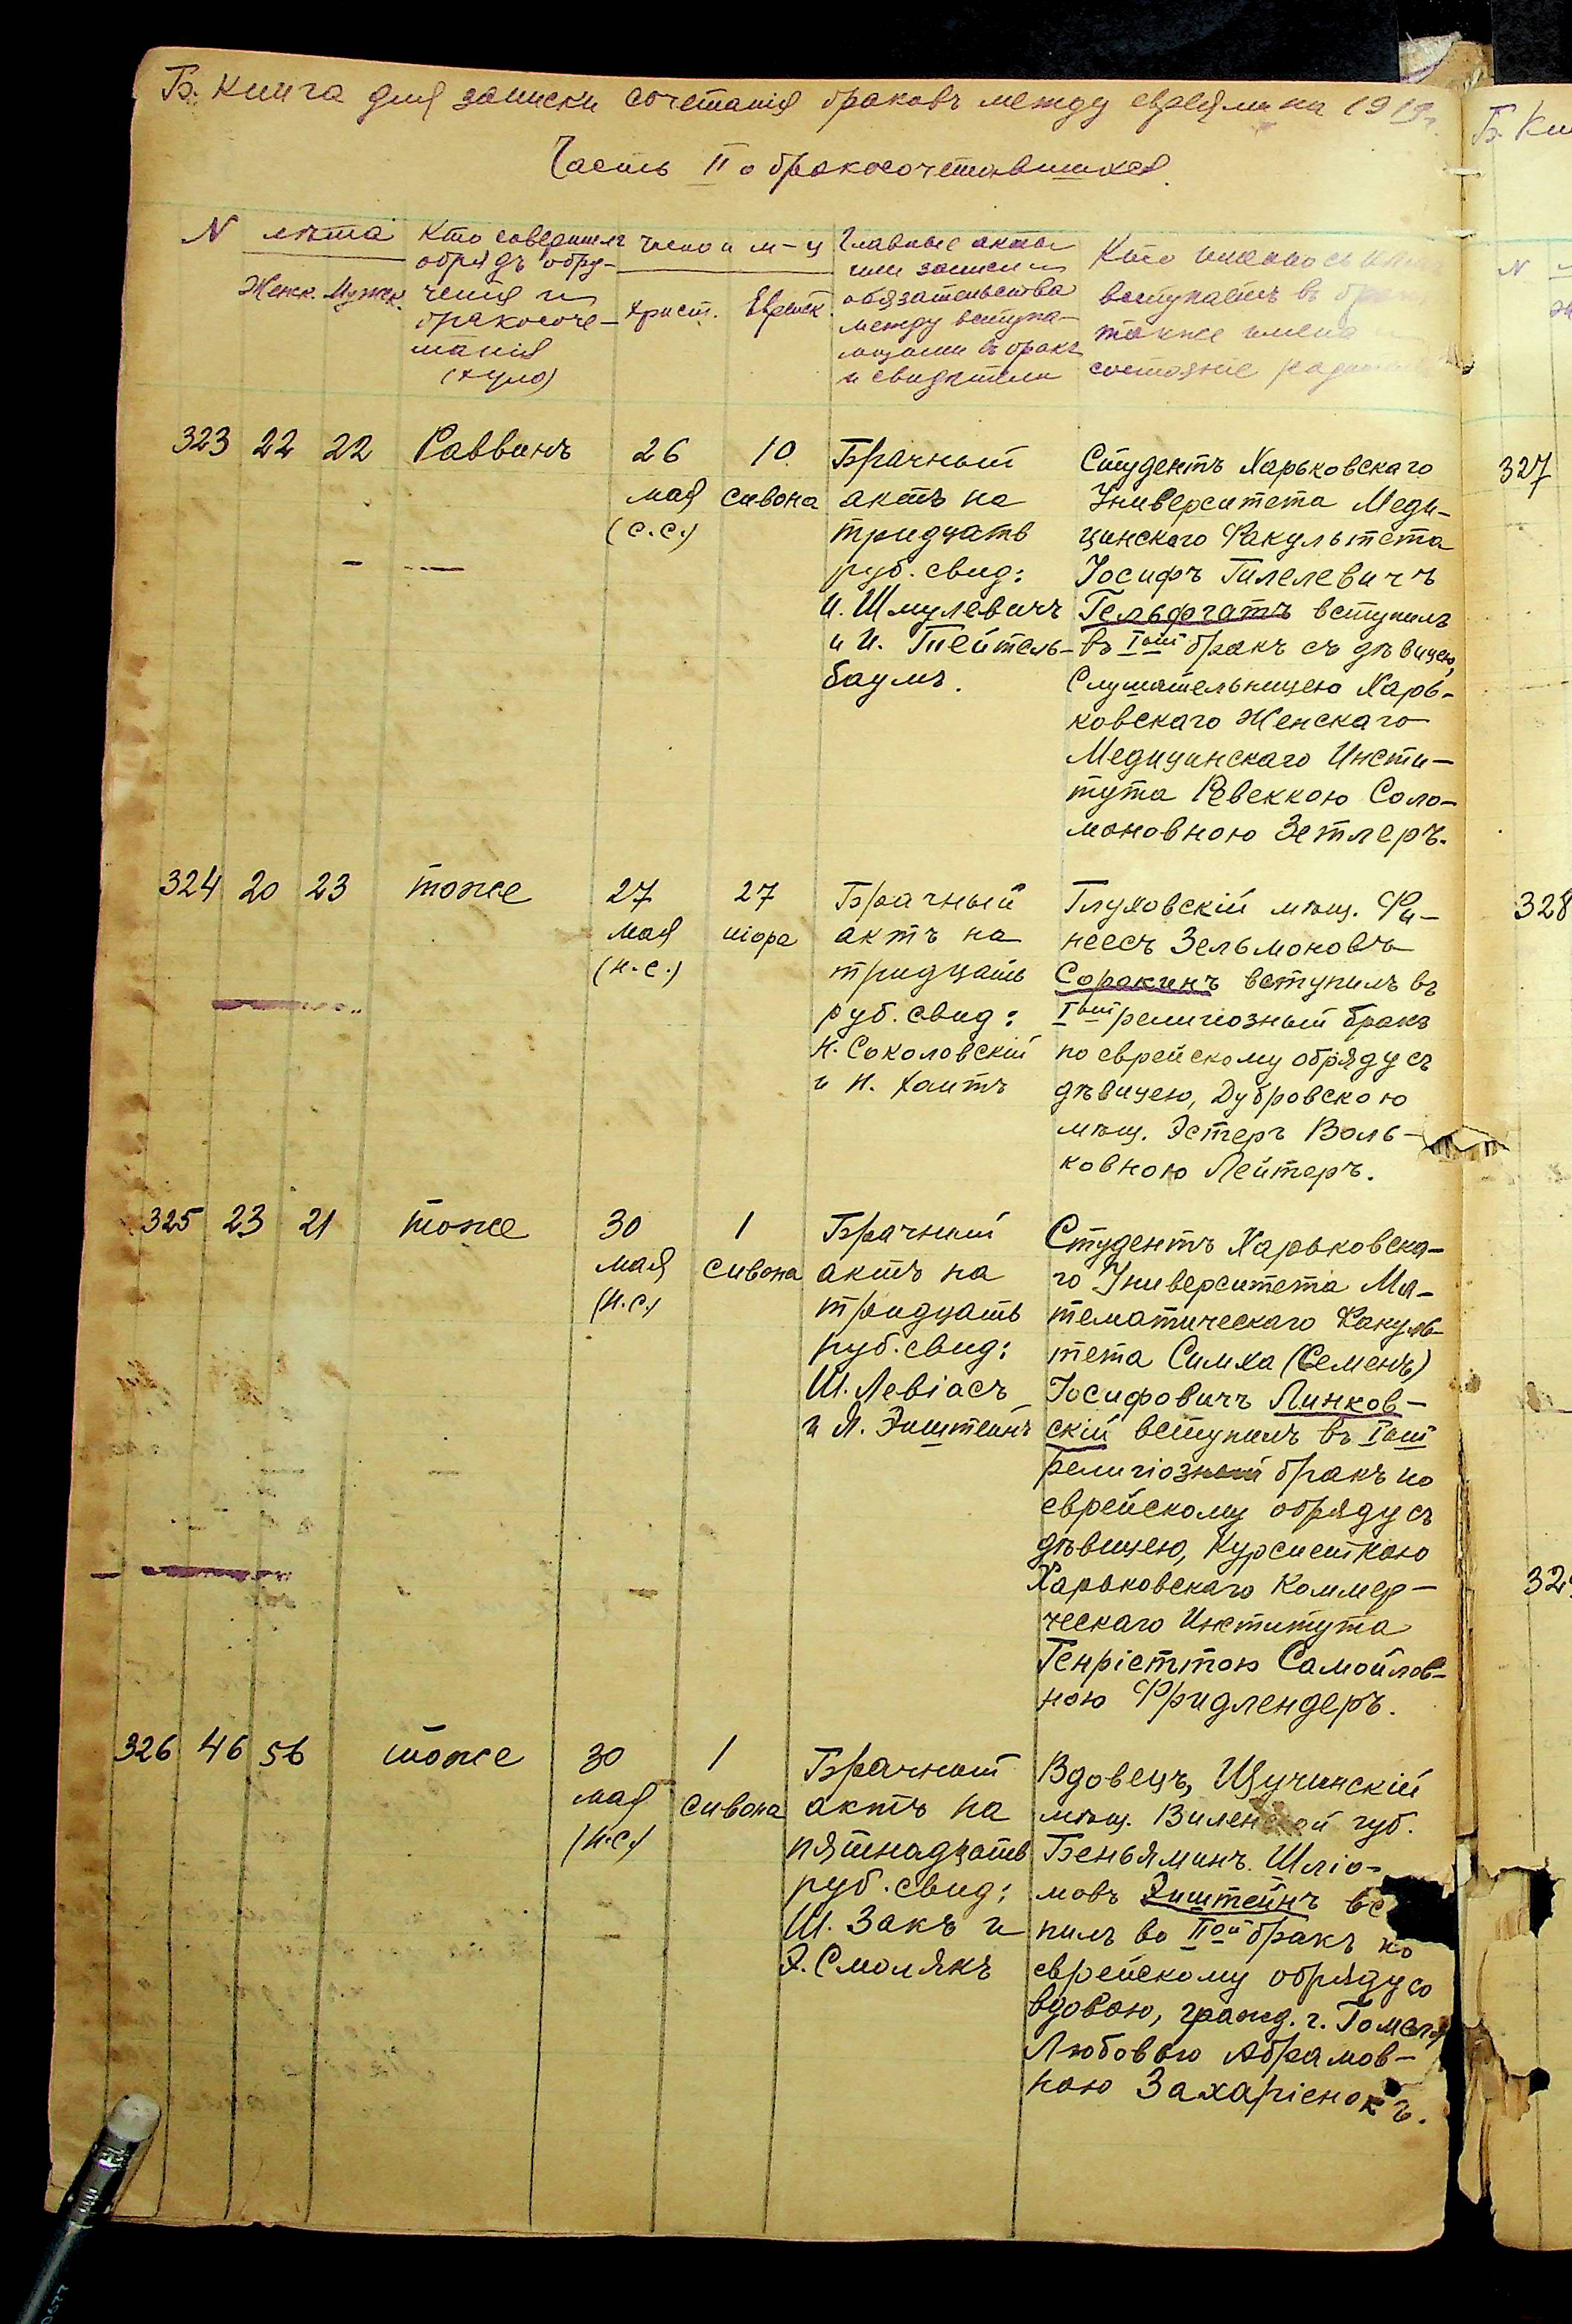 Б. Книга для записки сочетанія браковъ между евреями на 1919г.
Часть II о бракосочетавшихся.
N лѣта Женск. Мужск.
Кто совершилъ
обрядъ обру-
ченія и
бракосоче-
танія
число и м-ц
Христ. Еврейск.
Главные акты
или записи и
обязательства
между вступа-
ющими въ бракъ
и свидѣтели
Кто именно съ
вступаетъ въ
также имена
состояніе
323 22 22 Раввинъ
26
мая
(с.с.)
10
сивона
Брачный
актъ на
тридцать
руб. свид:
И. Шмулевичъ
и И. Тейтель-
баумъ.
Студентъ Харьковскаго
Университета Меди-
цинскаго Факультета
Іосифъ Гилелевичъ
Гельфгатъ вступилъ
въ Iый бракъ съ дѣвицею,
Слушательницею Харь-
ковскаго Женскаго
Медицинскаго Инсти-
тута Ревеккою Соло-
моновною Зетлеръ.
324 20 23 тоже
27
мая
(н.с.)
27
иіора
Брачный
актъ на
тридцать
руб. свид:
Н. Соколовскій
и Н. Хаитъ
Глуховскій мѣщ. Фи-
неесъ Зельмоновъ
Сорокинъ вступилъ въ
Iый религіозный бракъ
по еврейскому обряду съ
дѣвицею, Дубровскою
мѣщ. Эстеръ Воль-
ковною Лейтеръ.
325 23 21 тоже
30
мая
(н.с.)
1
сивона
Брачный
актъ на
тридцать
руб. свид:
Ш. Левіасъ
и Я. Эпштейнъ
Студентъ Харьковска-
го Университета Ма-
тематическаго Факуль-
тета Симха (Семенъ)
Іосифовичъ Линков-
скій вступилъ въ Iый
религіозный бракъ по
еврейскому обряду съ
дѣвицею, Курсисткою
Харьковскаго Коммер-
ческаго Института
Генріеттою Самойлов-
ною Фридлендеръ.
326 46 56 тоже
30
мая
(н.с.)
1
сивона
Брачный
актъ на
пятнадцать
руб. свид:
Ш. Закъ и
Э. Смолякъ
Вдовецъ, Щучинскій
мѣщ. Виленской губ.
Беньяминъ Шліо-
мовъ Эпштейнъ вс
пилъ во IIой бракъ по
еврейскому обряду со
вдовою, гражд. г. Гомеля
Любовью Абрамов-
ною Захаріенокъ.
Б. Кни
N
327
328